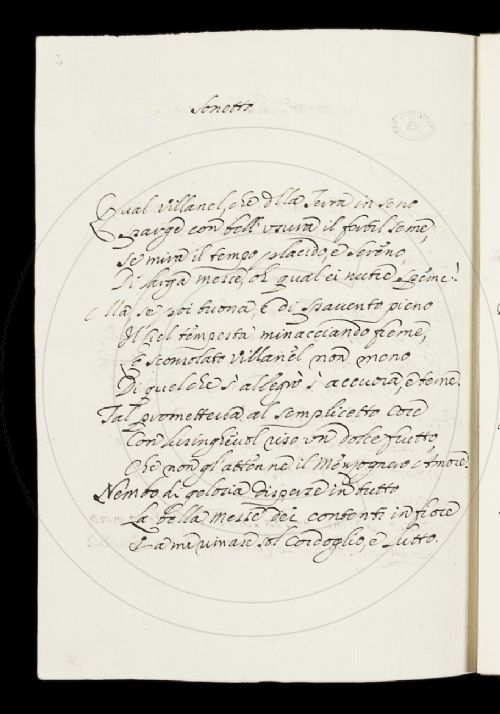 Sonetto
Qual Villanel, che della Terra in seno
Sparge con bell' usura il fertil seme,
Se mira il tempo placido, e sereno,
Di larga messe, oh qual ei nutre speme!
Ma se poi tuona, e di spavento pieno
Il Ciel tempesta minacciando freme,
Lo sconsolato Villanel non meno
Di quel che si allegrò si accuora, e teme.
Tal prometteva al semplicetto core
Con lusinghevol viso un dolce frutto,
Che non gl'attenne il Menzognero Amore.
Nembo di gelosia disperse in tutto
La bella messe dei contenti in fiore
E a me rimase sol Cordoglio, e Lutto.